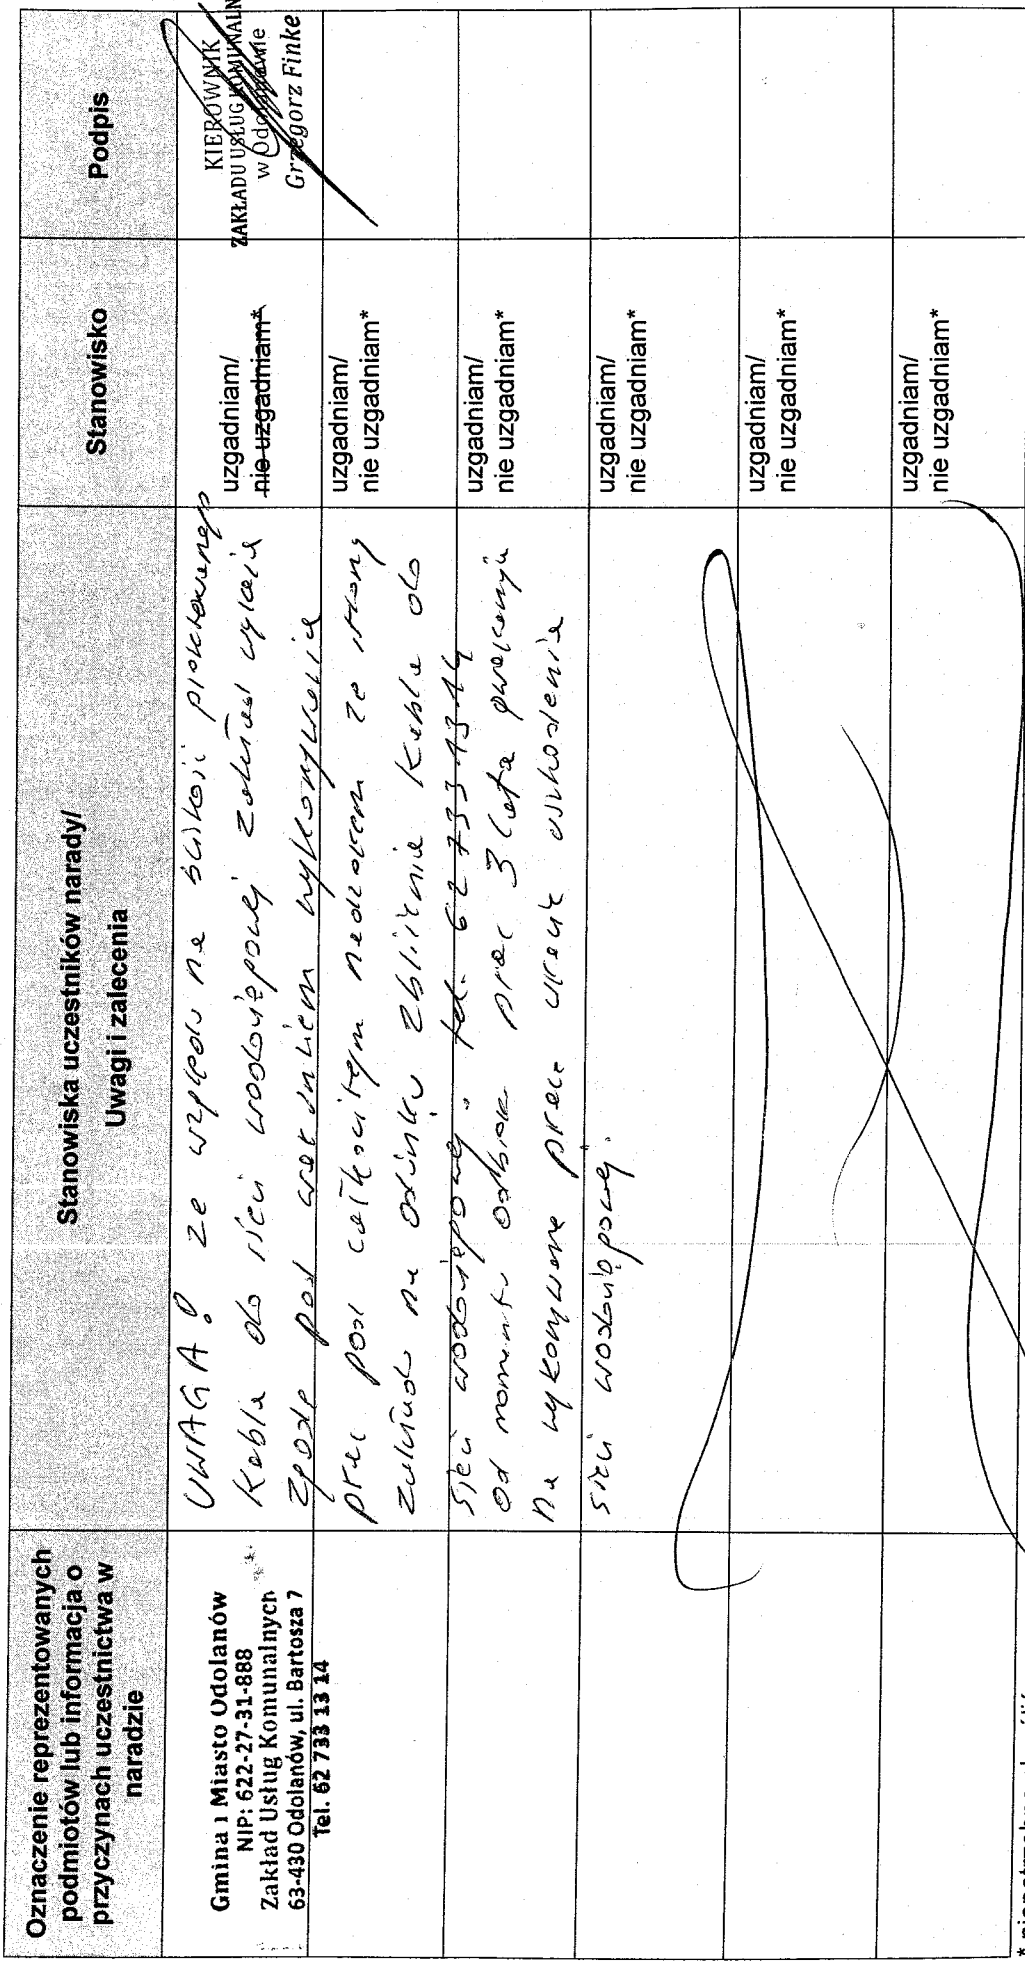 Oznaczenie reprezentowanych
podmiotów lub informacja o
przyczynach uczestnictwa w
naradzie
Stanowiska uczestników narady/
Uwagi i zalecenia
Stanowisko
Podpis
Gmina i Miasto Odolanów
NIP: 622-27-31-888
Zakład Usług Komunalnych
63-430 Odolanów, ul. Bartosza 7
Tel. 62 733 13 14
UWAGA! ze względu na bliskość projektowanego
kabla do sieci wodociągowej
pod warunkiem wykonywania
prac pod całkowitym nadzorem ze strony
zakładu na odcinku zbliżenia kabla do
sieci wodociągowej. tel. 62 733 13 14
od momentu odbioru prac 3 lata gwarancji
na wykonane prace
sieci wodociągowej.
uzgadniam/
nie uzgadniam*
KIEROWNIK
ZAKŁADU USŁUG KOMUNALN
w Odolanowie
Grzegorz Finke
uzgadniam/
nie uzgadniam*
uzgadniam/
nie uzgadniam*
uzgadniam/
nie uzgadniam*
uzgadniam/
nie uzgadniam*
uzgadniam/
nie uzgadniam*